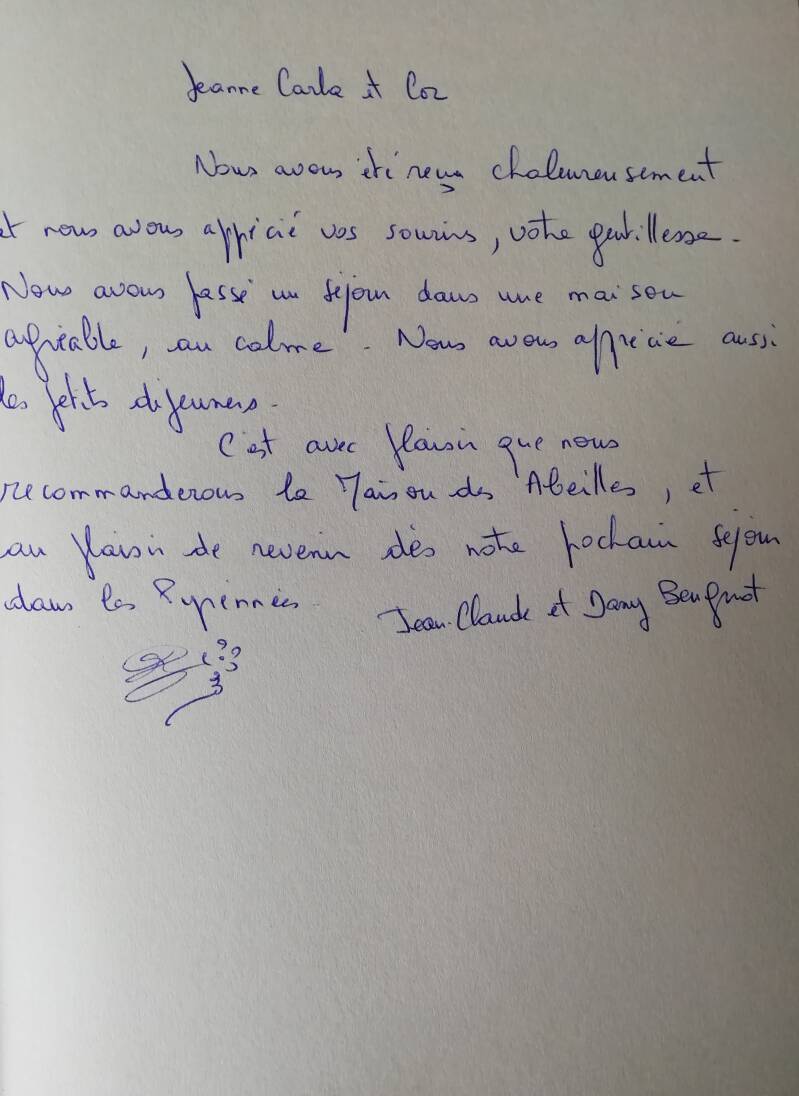 Jeanne Carla et Cor
Nous avons été reçu chaleureusement
et nous avons apprécié vos souris, votre gentillesse.
Nous avons passé un séjour dans une maison
agréable, au calme. Nous avons apprécié aussi
les petits déjeuners.
C'est avec plaisir que nous
recommanderons la Maison des Abeilles, et
au plaisir de revenir dès notre pochain séjour
dans les Pyrénnées.
Jean-Claude et Dany Beugnot